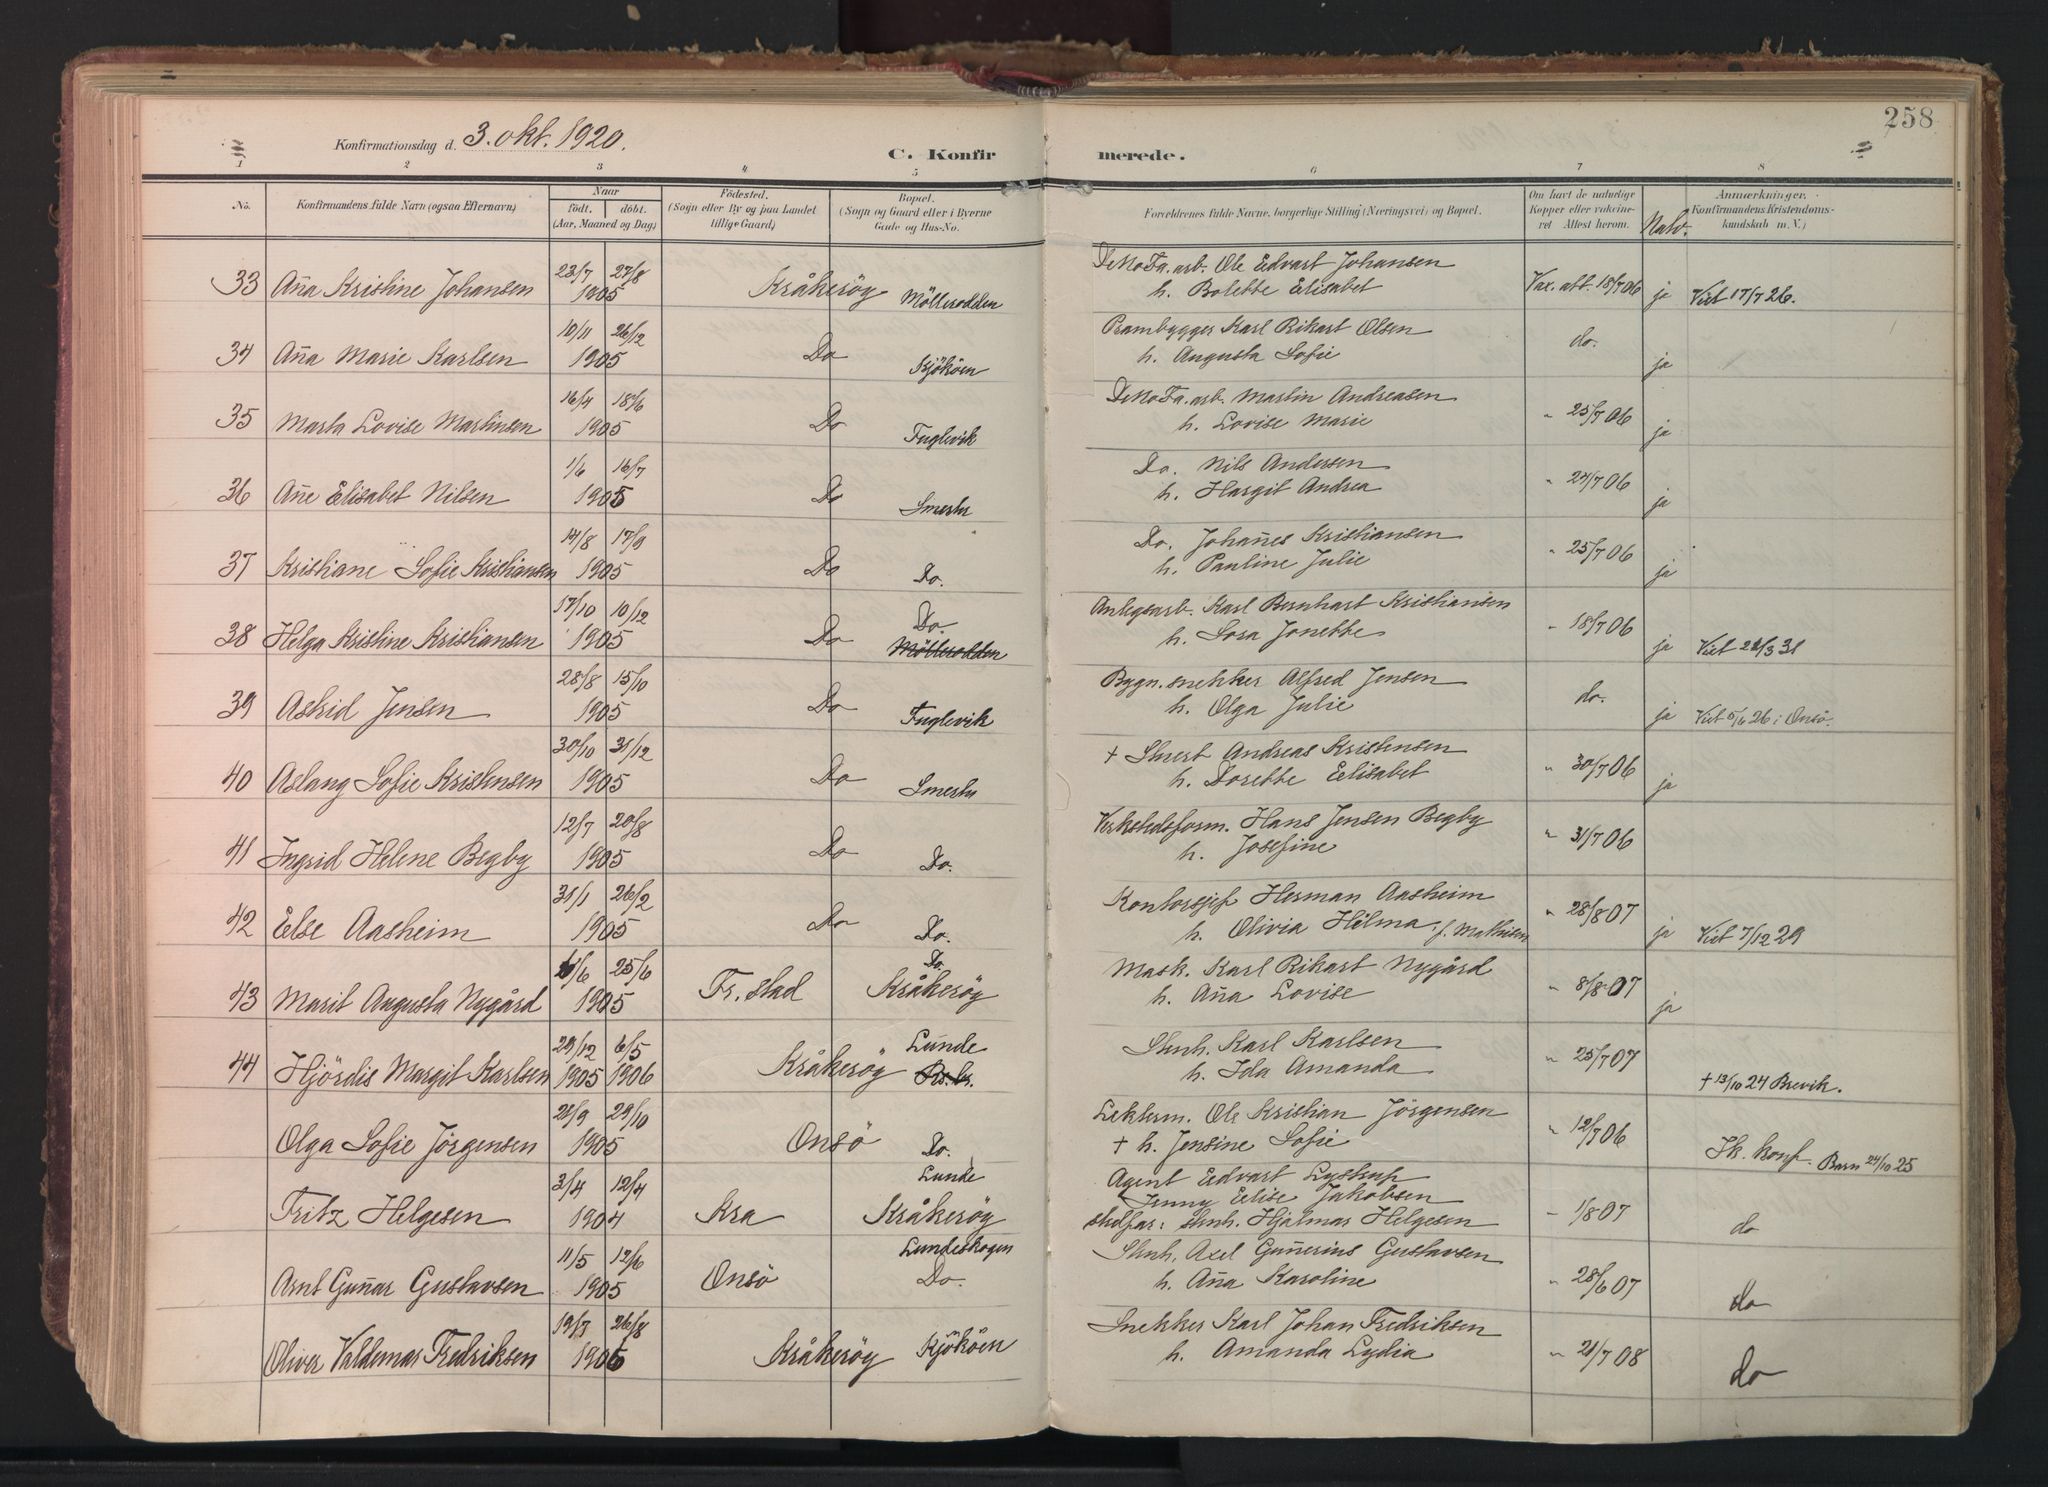 258
Konfirmationsdag d. 3. okt. 1920.
C. Konfirmerede.
1 2 3 4 5 6 7 8
No. Konfirmandens fulde Navn (ogsaa Efternavn.) Naar født. døbt. (Aar, Maaned og Dag.) Fødested. (Sogn eller By og paa Landet tillige Gaard.) Bopæl. (Sogn og Gaard eller i Byerne Gade og Hus-No. Forældrenes fulde Navne, borgerlige Stilling (Næringsvei) og Bopæl. Om havt de naturlige Kopper eller vakcineret Attest herom. Natv. Anmærkninger. Konfirmandens Kristendomskundskab m. V.)
33 Aña Kristine Johansen 23/7 27/8 1905 Kråkeröy Mölleradden DeNoFa.arb. Ole Edvart Johansen
h. Bolette Elisabet Vax. att. 18/7 06 ja Viet 17/7 26.
34 Aña Marie Karlsen 10/11 26/12 1905 Do Kjököen Prambygger Karl Rikart Olsen
h. Augusta Sofie do. ja
35 Marta Lovise Martinsen 16/4 18/6 1905 Do Fuglevik DeNoFa.arb. Martin Andreasen
h. Lovise Marie " 25/7 06 ja
36 Añe Elisabet Nilsen 1/6 16/7 1905 Do Smertu Do. Nils Andersen
h. Hargit Andrea " 24/7 06 ja
37 Kristiane Sofie Kristiansen 14/8 17/9 1905 Do Do. Do. Johañes Kristiansen
h. Pauline Julie " 25/7 06 ja
38 Helga Kristine Kristiansen 17/10 10/12 1905 Do Do. Mölleradden Anlegsarb. Karl Bernhart Kristiansen
h. Lora Jonette " 18/7 06 ja Viet 3 31
39 Astrid Jensen 28/8 15/10 1905 Do Fuglevik Bygn.snekker Alfred Jensen
h. Olga Julie do. ja Viet 5/6 26 i Onsö.
40 Aslaug Sofie Kristensen 30/10 31/12 1905 Do Smertu + Stuert Andreas Kristensen
h. Dorette Elisabet " 30/7 06 ja
41 Ingrid Helene Begby 12/7 20/8 1905 Do Do. Verkstedsform. Hans Jensen Begby
h. Josefine " 31/7 06
42 Else Aasheim 31/1 26/2 1905 Do Do. Kontorsjef Herman Aasheim
h. Olivia Hilma f. Mathisen " 28/8 07 ja Viet 7/12 29
43 Marit Augusta Nygård /6 25/6 1905 Fr.stad Do Kråkeröy Mask. Karl Rikart Nygård
h. Aña Lovise " 8/8 07 ja
44 Hjördis Margit Karlsen 29/12 1905 6/5 1906 Kråkeröy Lunde Stenh. Karl Karlsen
h. Ida Amanda " 25/7 07 + 13/10 24 Brevik.
Olga Sofie Jörgensen 21/9 29/10 1905 Onsö Do. Lekterm. Ole Kristian Jörgensen
+ h. Jensine Sofie " 12/7 06 Ik. konf. Barn 24/10 25
Fritz Helgesen 3/4 12/4 1904 Kra Lunde Kråkeröy Agent Edvart Lystrup
Jenny Elise Jakobsen
stedfar: stenh. Hjalmar Helgesen " 1/8 07 do
Arnt Guñar Gustavsen 11/5 12/6 1905 Onsö Lundeskogen Do. Stenh. Axel Guñerius Gustavsen
h. Aña Karoline " 28/6 07 do
Oliver Valdemar Fredriksen 19/7 26/8 1906 Kråkeröy Kjököen Snekker Karl Johan Fredriksen
h. Amanda Lydia " 21/7 08 do